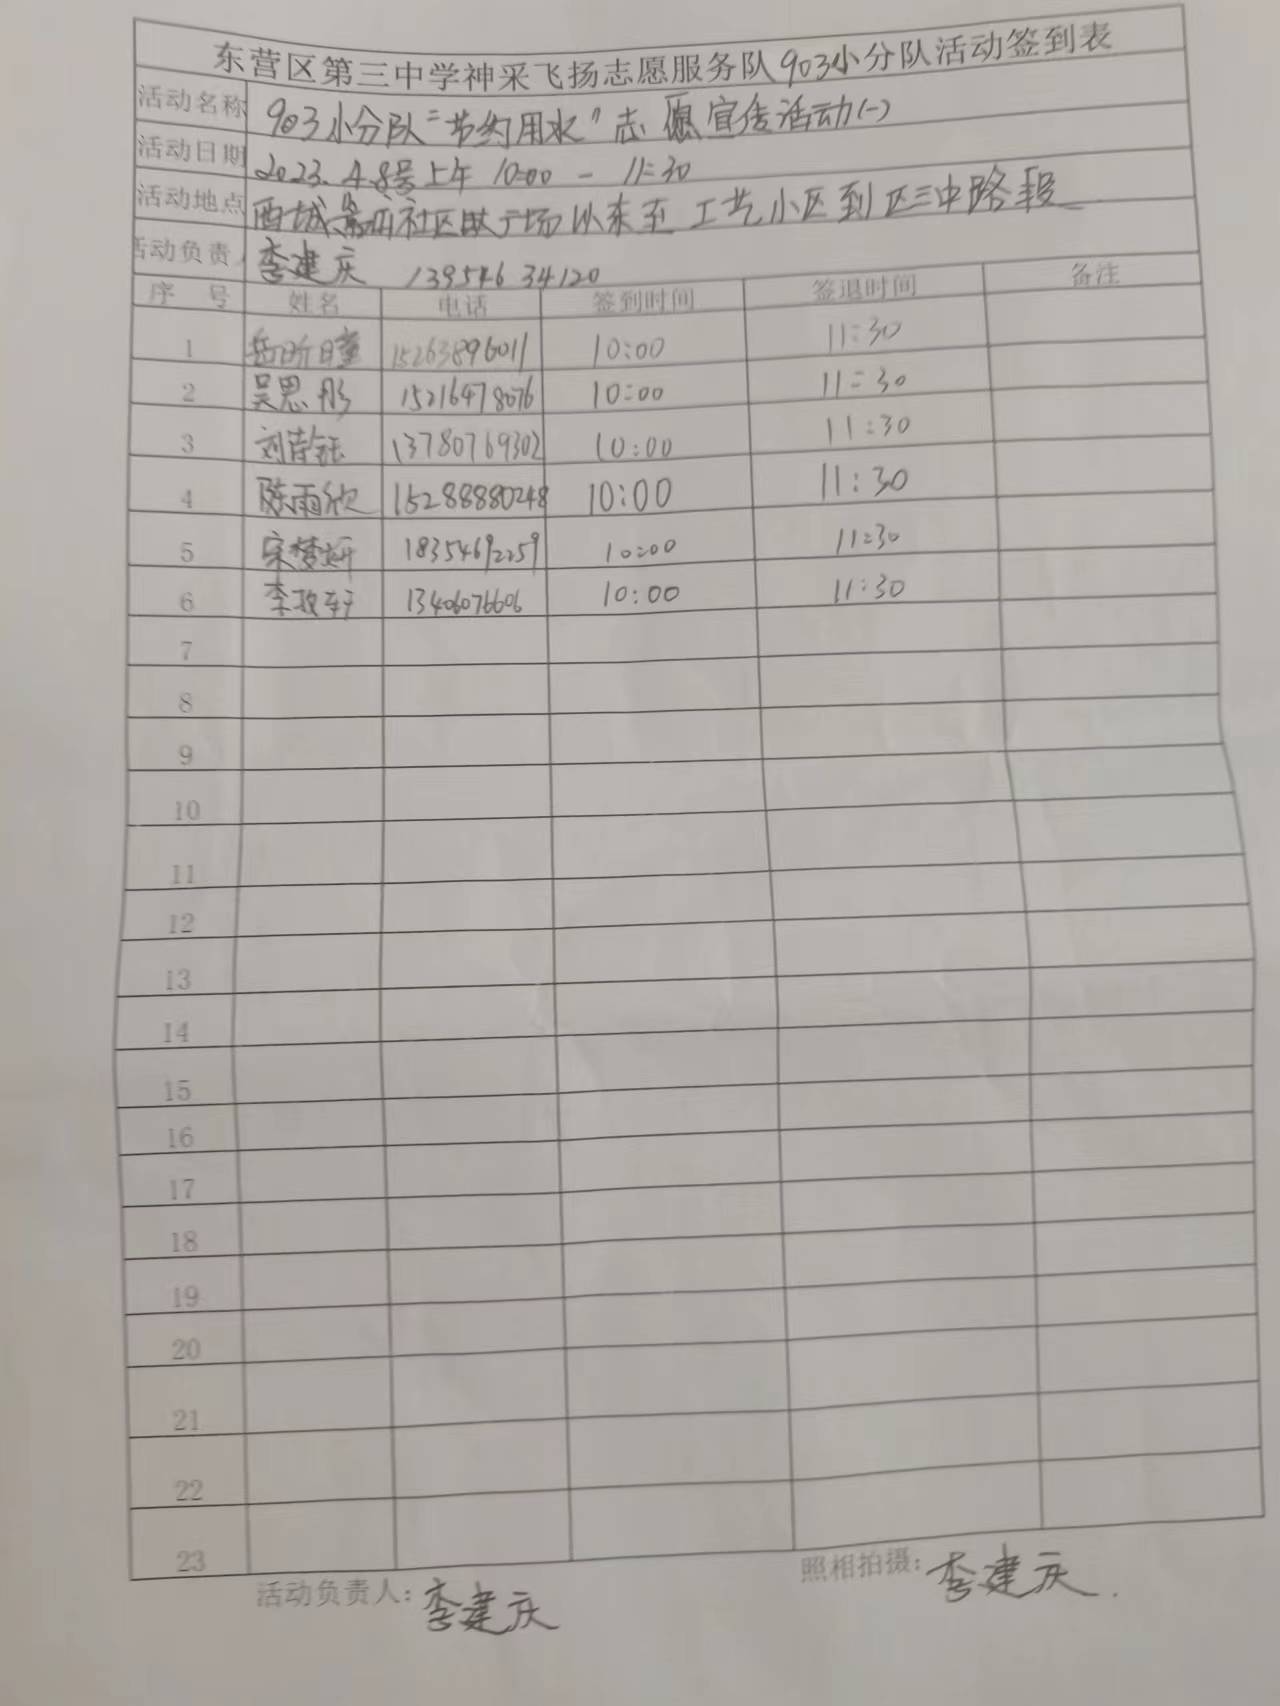 东营区第三中学神采飞扬志愿服务队903小分队活动签到表
活动名称 903小分队"节约用水"志愿宣传活动(一)
活动日期 2023.4.8号上午 10:00 - 11:30
活动地点 西城 社区 广场以东至工艺小区到区三中路段
活动负责人 李建庆 13954634120
序 号 姓名 电话 签到时间 签退时间 备注
1 岳昕瞳 15263896011 10:00 11:30
2 吴思彤 15216478076 10:00 11:30
3 刘 钰 13780769302 10:00 11:30
4 陈雨欣 15288880248 10:00 11:30
5 宋梦妍 18354692259 10:00 11:30
6 李政轩 13406076606 10:00 11:30
7
8
9
10
11
12
13
14
15
16
17
18
19
20
21
22
23
活动负责人: 李建庆 照相拍摄: 李建庆.